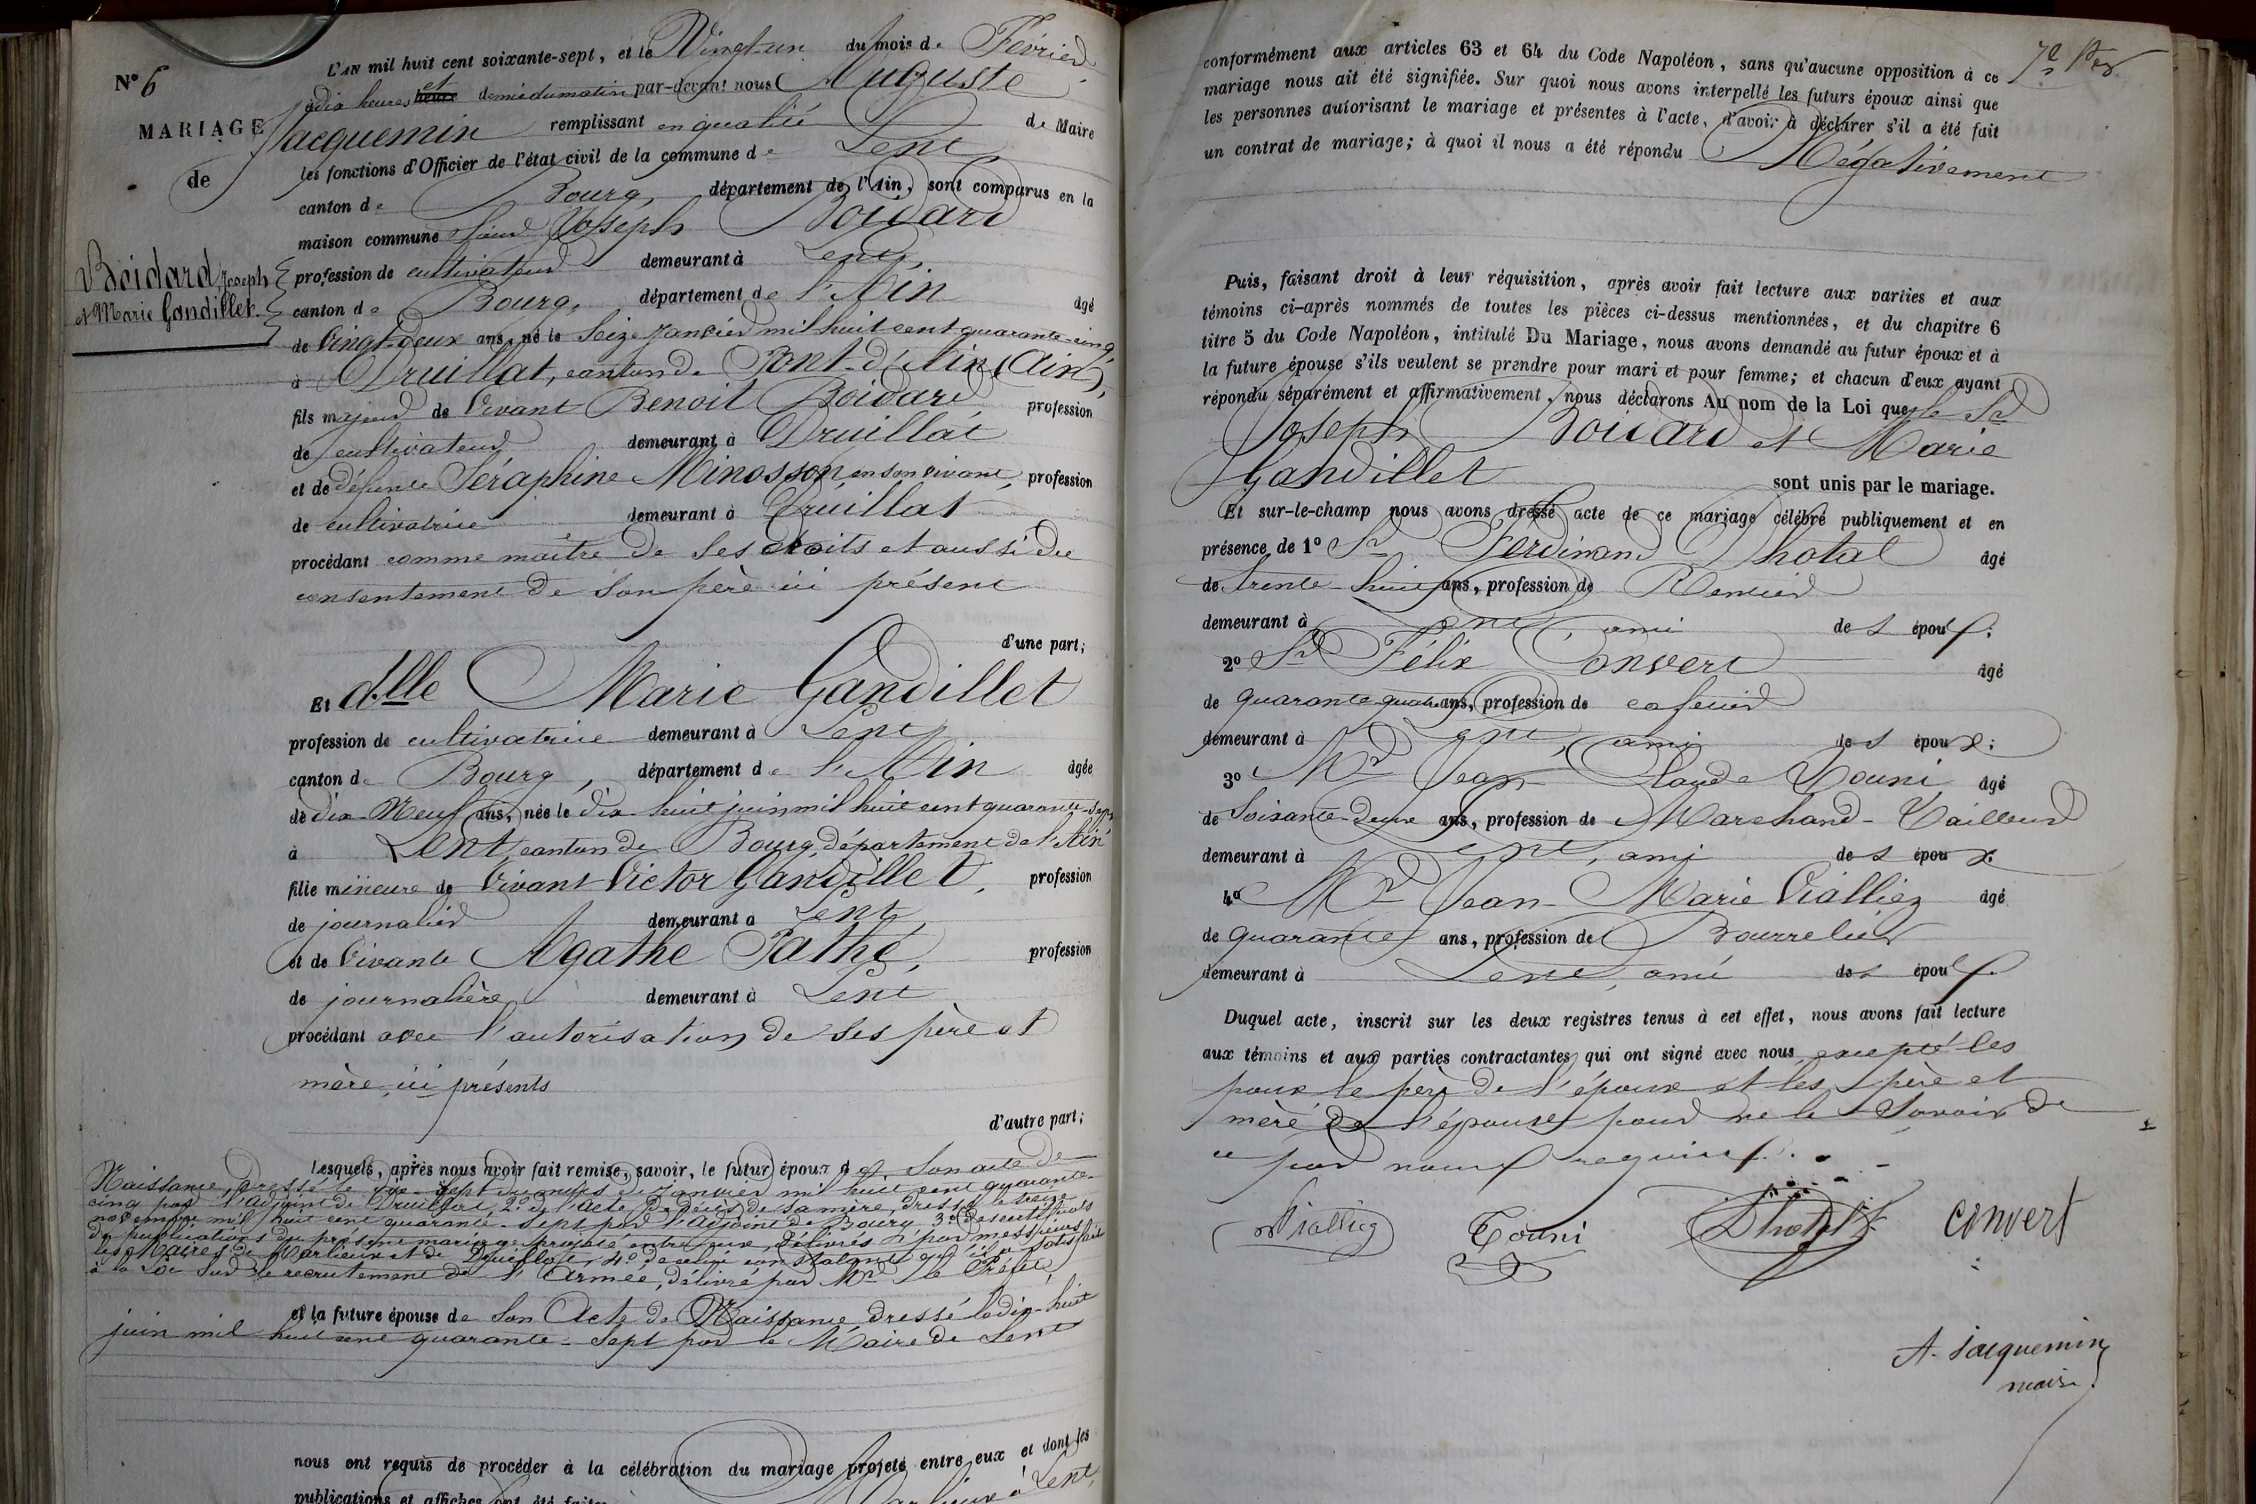 N° 6
MARIAGE
de
Boidard Joseph
et Marie Gandillet.
L'AN mil huit cent soixante-sept, et le Vingt-un du mois de Février
à dix heures et heure demie du matin par-devant nous Auguste
Jacquemin remplissant en qualité de Maire
les fonctions d'Officier de l'état civil de la commune de Lent
canton de Bourg, département de l'Ain, sont comparus en la
maison commune Sieur Joseph Boidard
profession de cultivateur demeurant à Lent,
canton de Bourg, département de l'Ain âgé
de Vingt-deux ans, né le Seize Janvier mil huit cent quarante-cinq,
à Druillat, canton de Pont-d'Ain (Ain),
fils majeur de Vivant Benoit Boidard profession
de cultivateur demeurant à Druillat
et de défunte Séraphine Minosson en son vivant profession
de cultivatrice demeurant à Druillat
procédant comme maître de ses droits et aussi du
consentement de son père ici présent
d'une part;
Et d.lle Marie Gandillet
profession de cultivatrice demeurant à Lent
canton de Bourg, département de l'Ain âgée
de dix-Neuf ans, née le dix-huit juin mil huit cent quarante-sept
à Lent, canton de Bourg département de l'Ain
fille mineure de Vivant Victor Gandillet, profession
de journalier demeurant à Lent
et de Vivante Agathe Pathé, profession
de journalière demeurant à Lent
procédant avec l'autorisation de ses père et
mère ici présents
d'autre part;
Lesquels, après nous avoir fait remise, savoir, le futur époux de Son acte de
Naissance, dressé le dix-sept du mois de Janvier mil huit cent quarante-
cinq par l'adjoint de Druillat, 2° de l'acte de Décès de sa mère, dressé le treize
novembre mil huit cent quarante-sept par l'adjoint de Bourg, 3° des certificats
de publications du présent mariage projeté entre eux, délivrés par messieurs
les Maires de Marlieux et de Druillat, 4° de celui constatant qu'il a satisfait
à la Loi sur le recrutement de l'Armée, délivré par Mr le Préfet,
et la future épouse de Son Acte de Naissance dressé le dix-huit
juin mil huit cent quarante-sept par le Maire de Lent
nous ont requis de procéder à la célébration du mariage projeté entre eux et dont les
publications et affiches ont été faites à Marlieux à Lent,
7e
conformément aux articles 63 et 64 du Code Napoléon, sans qu'aucune opposition à ce
mariage nous ait été signifiée. Sur quoi nous avons interpellé les futurs époux ainsi que
les personnes autorisant le mariage et présentes à l'acte, d'avoir à déclarer s'il a été fait
un contrat de mariage; à quoi il nous a été répondu Négativement
Puis, faisant droit à leur réquisition, après avoir fait lecture aux parties et aux
témoins ci-après nommés de toutes les pièces ci-dessus mentionnées, et du chapitre 6
titre 5 du Code Napoléon, intitulé Du Mariage, nous avons demandé au futur époux et à
la future épouse s'ils veulent se prendre pour mari et pour femme; et chacun d'eux ayant
répondu séparément et affirmativement, nous déclarons Au nom de la Loi que le Sr
Joseph Boidard et Marie
Gandillet sont unis par le mariage.
Et sur-le-champ nous avons dressé acte de ce mariage célébré publiquement et en
présence de 1° Sr Ferdinand Dhotal âgé
de trente-huit ans, profession de Rentier
demeurant à Lent, ami des époux;
2° Sr Félix Convert âgé
de quarante quatre ans, profession de cafetier
demeurant à Lent, ami des époux;
3° Mr Jean Claude Touni âgé
de Soixante-deux ans, profession de Marchand-Tailleur
demeurant à Lent, ami des époux
4° Mr Jean-Marie Vialliez âgé
de quarante ans, profession de Bourrelier
demeurant à Lent, ami des époux
Duquel acte, inscrit sur les deux registres tenus à cet effet, nous avons fait lecture
aux témoins et aux parties contractantes qui ont signé avec nous excepté les
poux le père de l'époux et les père et
mère de l'épouse pour ne le savoir de
ce par nous requis.
Vialliez Touni Dhotal Convert
A. Jacquemin
maire